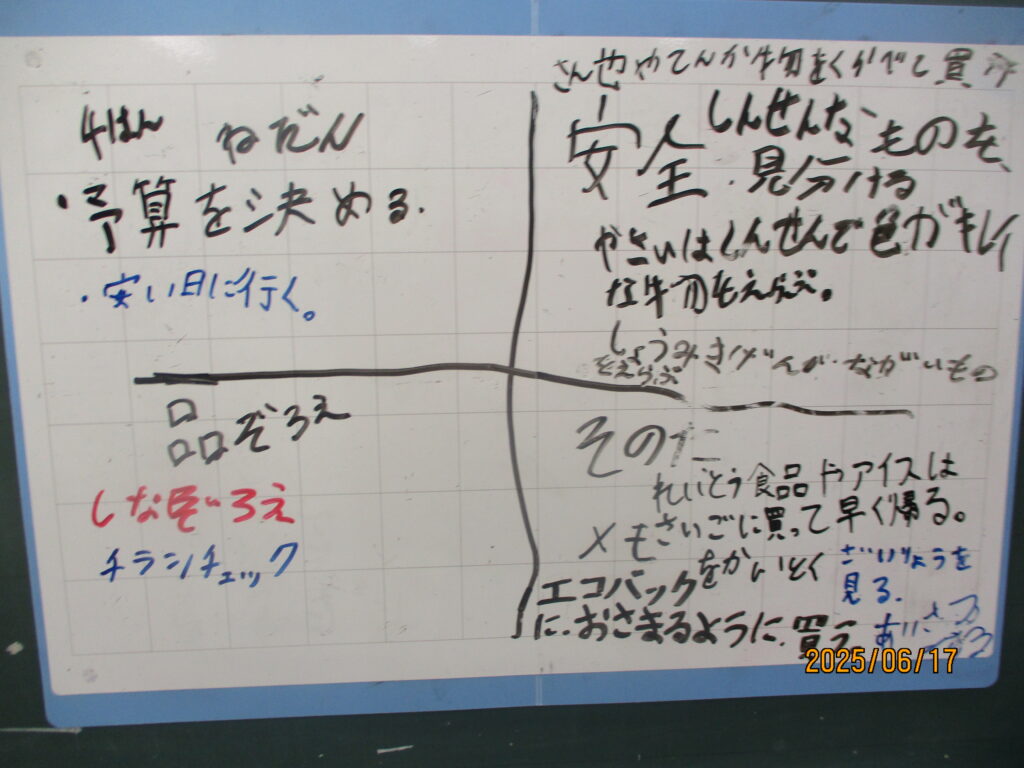 4はん
ねだん
・予算を決める.
・安い日に行く。
さん地やてんか物をくらべて買う
安全
しんせんなものを、
・見分ける
やさいはしんせんで色がキレイ
な物をえらぶ。
しょうみきげんが、ながいもの
をえらぶ
品ぞろえ
しな ぞろえ
チラシチェック
そのた
れいとう食品やアイスは
さいごに買って早く帰る。
メモをかいとく
ざいりょうを
見る.
エコバック
に、おさまるように、買う
あいさつ
2025/06/17